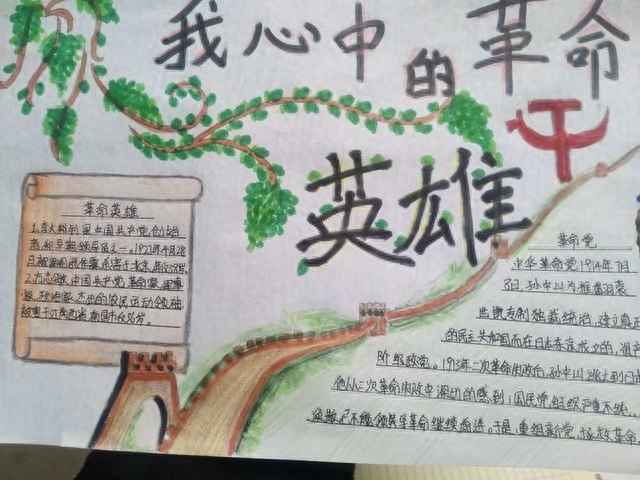 我心中的革命
英雄
革命英雄
1.李大钊中国共产党创始
者和早期领导 之一。1927年4月28
日被 军阀 杀害于北京
2.方志敏 中国共产党 革命家 军事
家、政治家 杰出的农民运动领袖
被 于江西 省南昌市 36岁。
革命党
中华革命党1914年7月
8日,孙中山为推翻袁
世凯专制独裁统治,建立真正
的民主共和国而在日本东京成立的,资产
阶级政党。1913年二次革命失败后,孙中山逃亡到日
他从二次革命失败中深切的感到:国民党组织严重不纯,
涣散,已不能领导革命继续前进。于是,重组新党,拯救革命